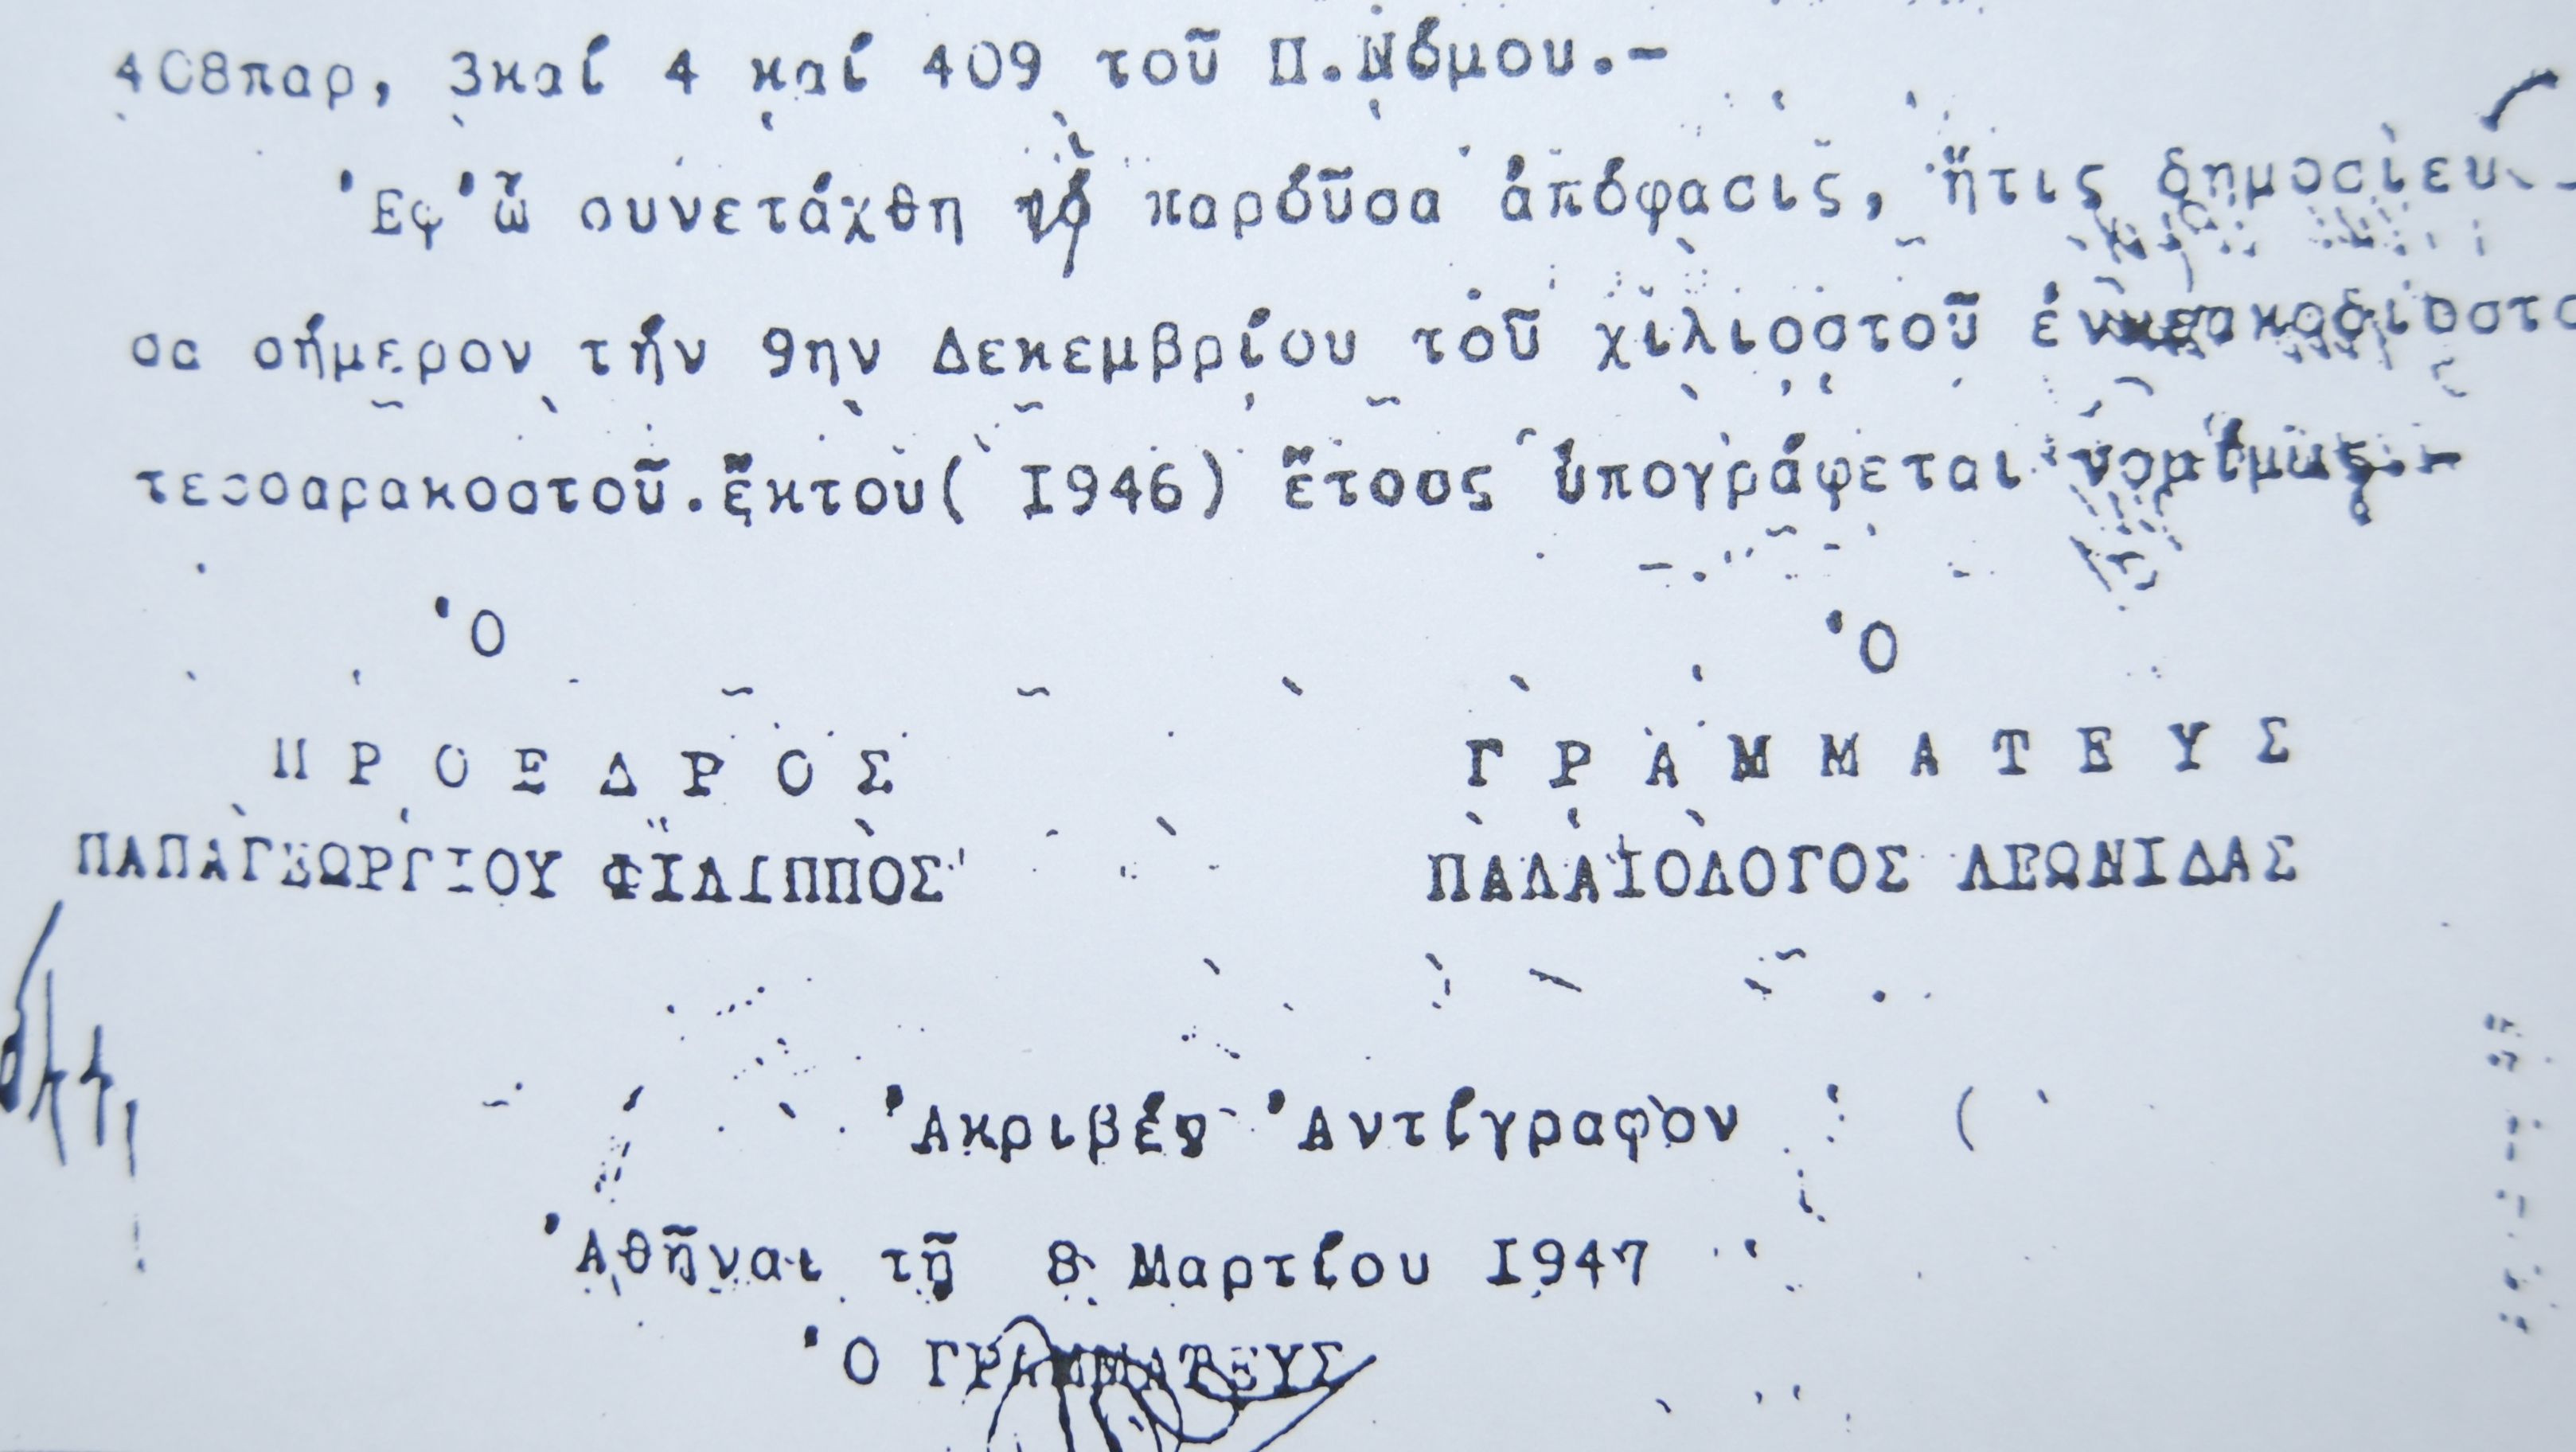 408παρ, 3καί 4 καί 409 τοῦ Π.Νόμου.-
Ἐφ'ᾧ συνετάχθη ἡ παροῦσα ἀπόφασις, ἥτις δημοσιευ
σα σήμερον τήν 9ην Δεκεμβρίου τοῦ χιλιοστοῦ
τεσσαρακοστοῦ.ἕκτου( 1946) ἔτοος ὑπογράφεται νομίμως.-
Ὁ Ὁ
Π Ρ Ο Ε Δ Ρ Ο Σ Γ Ρ Α Μ Μ Α Τ Ε Υ Σ
ΠΑΠΑΓΕΩΡΓΙΟΥ ΦΙΛΙΠΠΟΣ ΠΑΛΑΙΟΛΟΓΟΣ ΛΕΩΝΙΔΑΣ
Ἀκριβές Ἀντίγραφον
Ἀθῆναι τῇ 8 Μαρτίου 1947
Ὁ ΓΡΑΜΜΑΤΕΥΣ